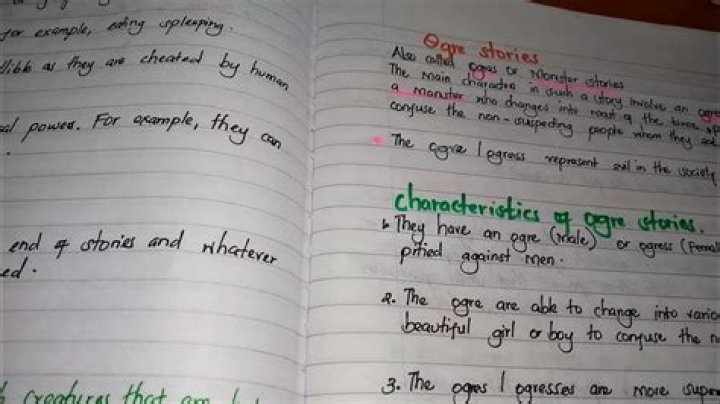 for example, eating, sleeping.
as they are cheated by human
power. For example, they can
end of stories and whatever
ed.
creatures that are
Ogre stories
Also called ogres or Monster stories
The main character in such a story involve an ogre
a monster who changes into most of the times
confuse the non-suspecting people whom they
The ogre / ogress represent evil in the society
characteristics of ogre stories.
They have an ogre (Male) or ogress (Female
pitied against men.
2. The ogre are able to change into
beautiful girl or boy to confuse the
3. The ogres / ogresses are more